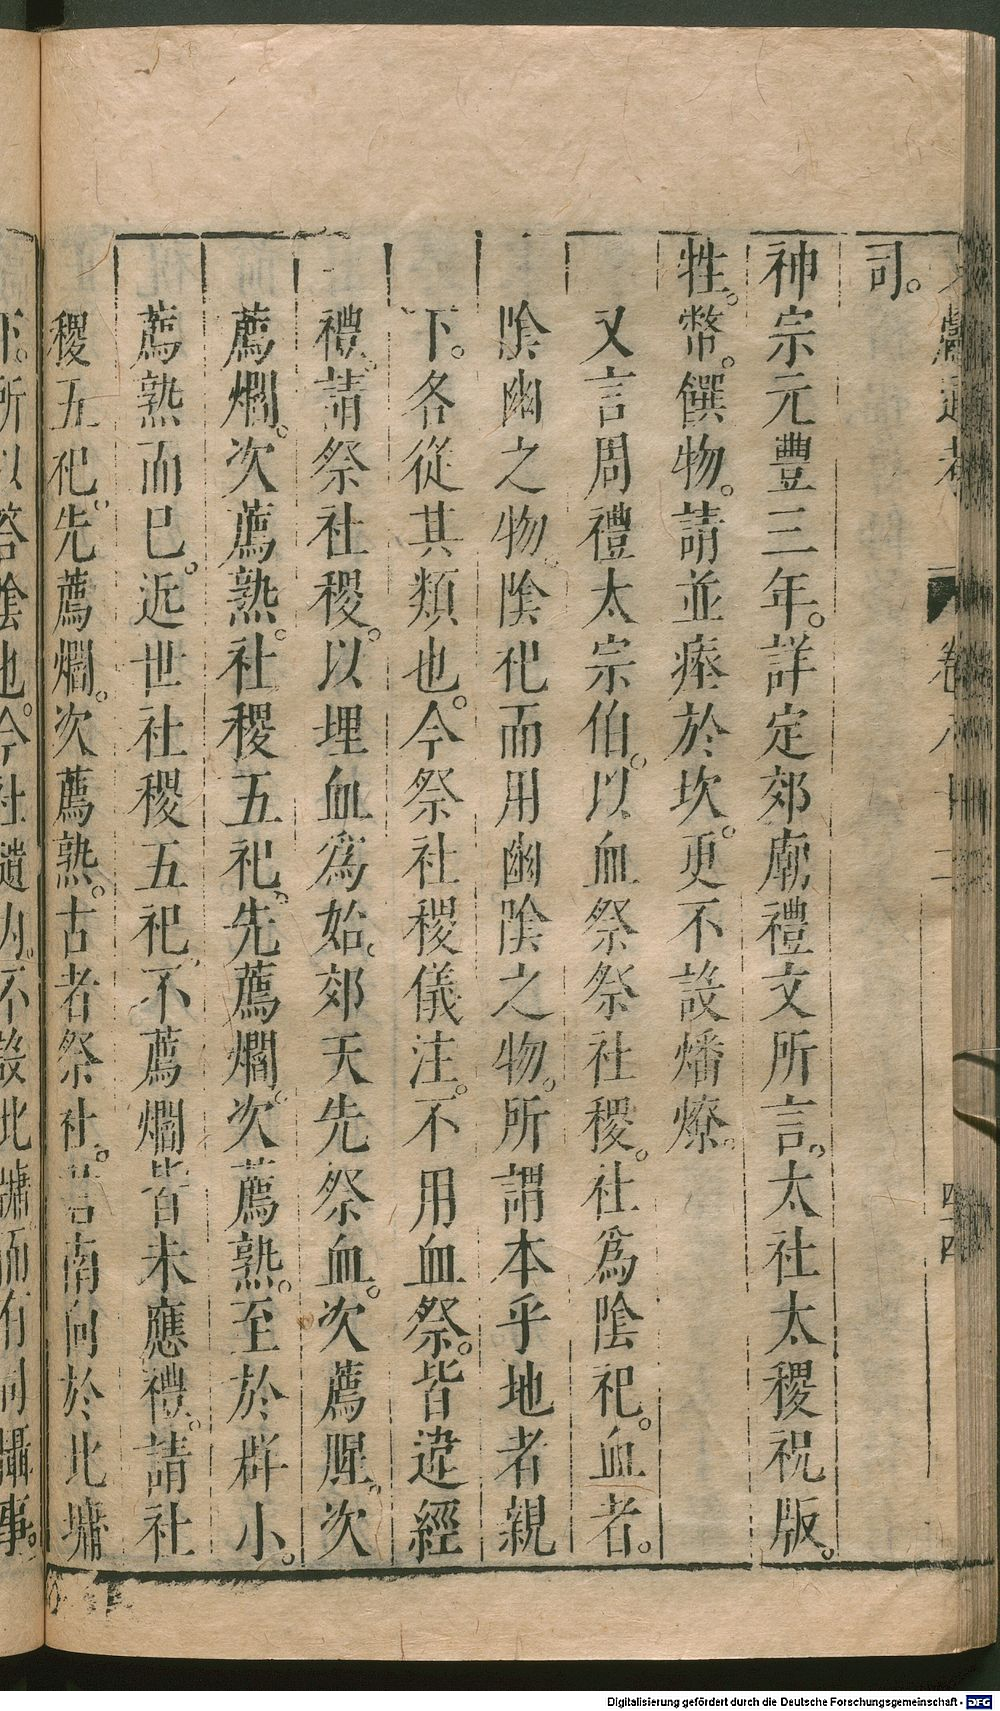 司。
神宗元豐三年。詳定郊廟禮文所言。太社太稷祝版。
牲。幣。饌物。請並瘞於坎。更不設燔燎。
又言周禮太宗伯。以血祭祭社稷。社爲陰祀。血者。
陰幽之物。陰祀而用幽陰之物。所謂本乎地者親
下。各從其類也。今祭社稷儀注。不用血祭。皆違經
禮。請祭社稷。以埋血爲始。郊天先祭血。次薦腥。次
薦爓。次薦熟。社稷五祀。先薦爓。次薦熟。至於群小。
薦熟而已。近世社稷五祀。不薦爓皆未應禮。請社
稷五祀。先薦爓。次薦熟。古者祭社。君南向於北墉
下。所以答陰也。今社壝內。不設北墉而有司攝事。
卷八十二
四十四
Digitalisierung gefördert durch die Deutsche Forschungsgemeinschaft - DFG